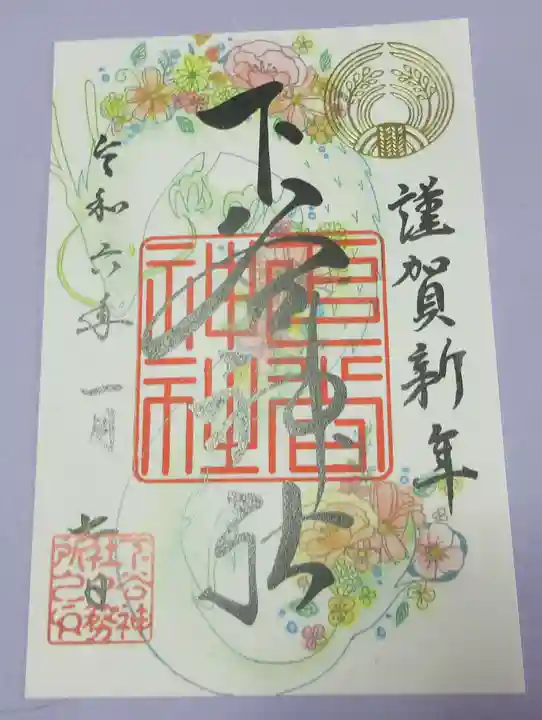 謹賀新年
下谷神社
令和六年一月七日
下谷神
社社務
所之印